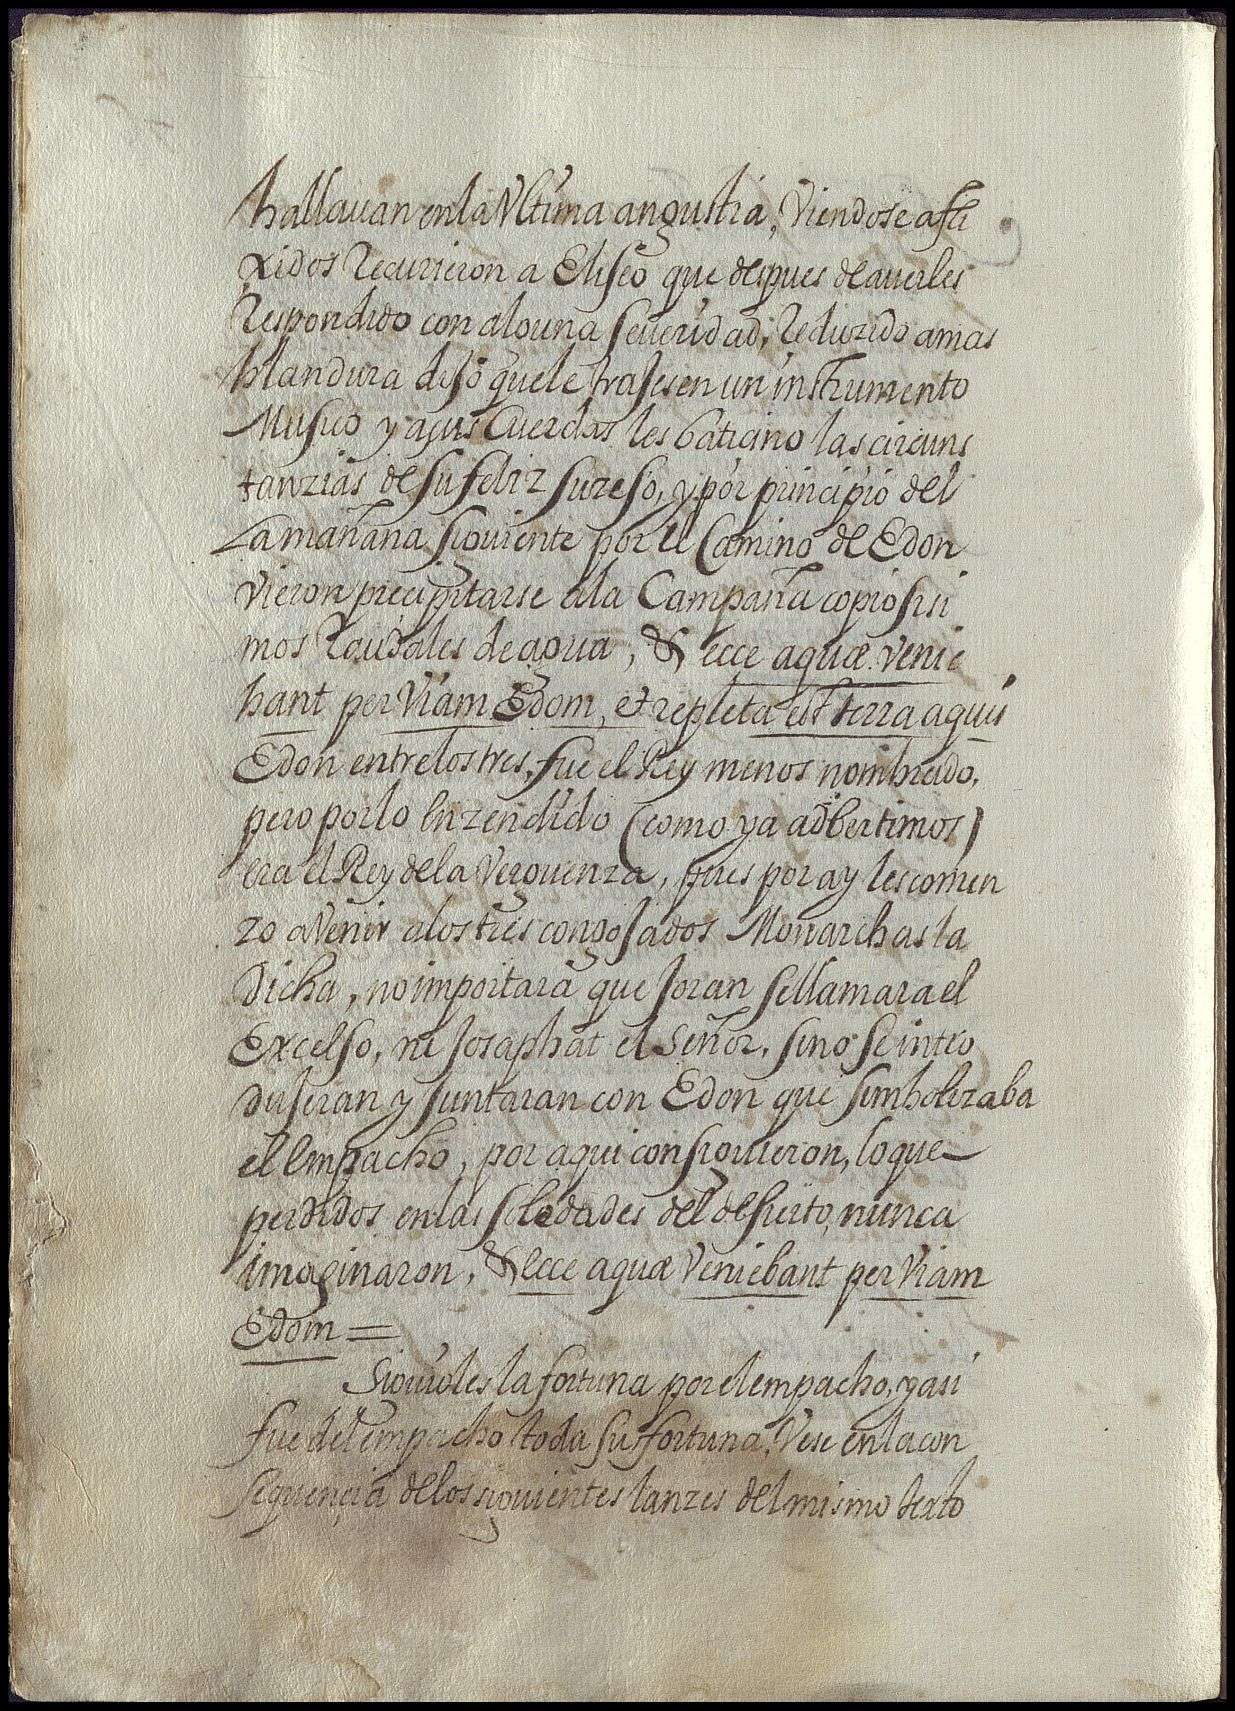 hallauan en la Vltima angustia, Viendose afli
xidos Recurieron a Eliseo que despues de auerles
Respondido con alguna seueridad, Reduzido a mas
blandura dijo que le trajesen un instrumento
Musico y a sus Cuerdas les baticino las circuns
tanzias de su feliz suzeso, y por principio del
La mañana siguiente por el Camino de Edon
vieron precipitarse a la Campaña copiosisi
mos Raudales de agua, & ecce aquæ venie
bant per Viam Edom, et repleta est terra aquis
Edon entre los tres, fue el Rey menos nombrado,
pero por lo enzendido (como ya adbertimos)
era el Rey de la Verguenza, pues por ay les comen
zo a Venir a los tres congojados Monarchas la
Dicha, no importara que Joran se llamara el
Excelso, ni Josaphat el Señor, sino se intro
dujeran y juntaran con Edon que simbolizaba
el empacho, por aqui consiguieron, lo que
perdidos en las soledades del desierto, nunca
imaginaron, & ecce aquæ Veniebant per Viam
Edom =
Siguioles la fortuna por el empacho, y asi
fue del empacho toda su fortuna, Vese en la con
sequençia de los siguientes lanzes del mismo texto